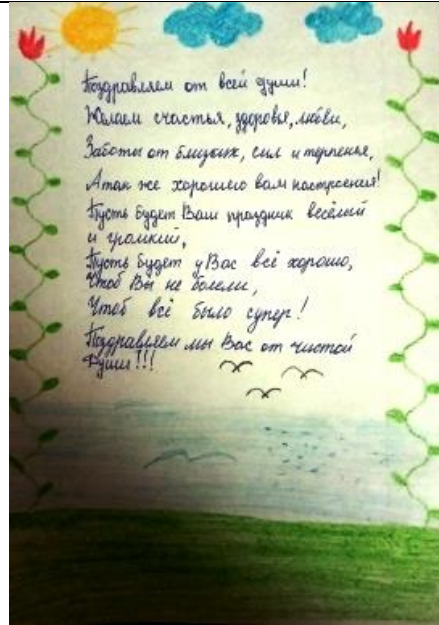 Поздравляем от всей души!
Желаем счастья, здоровья, любви,
Заботы от близких, сил и терпенья,
А так же хорошего вам настроения!
Пусть будет Ваш праздник весёлый
и громкий,
Пусть будет у Вас всё хорошо,
Чтоб Вы не болели,
Чтоб всё было супер!
Поздравляем мы Вас от чистой
Души!!!